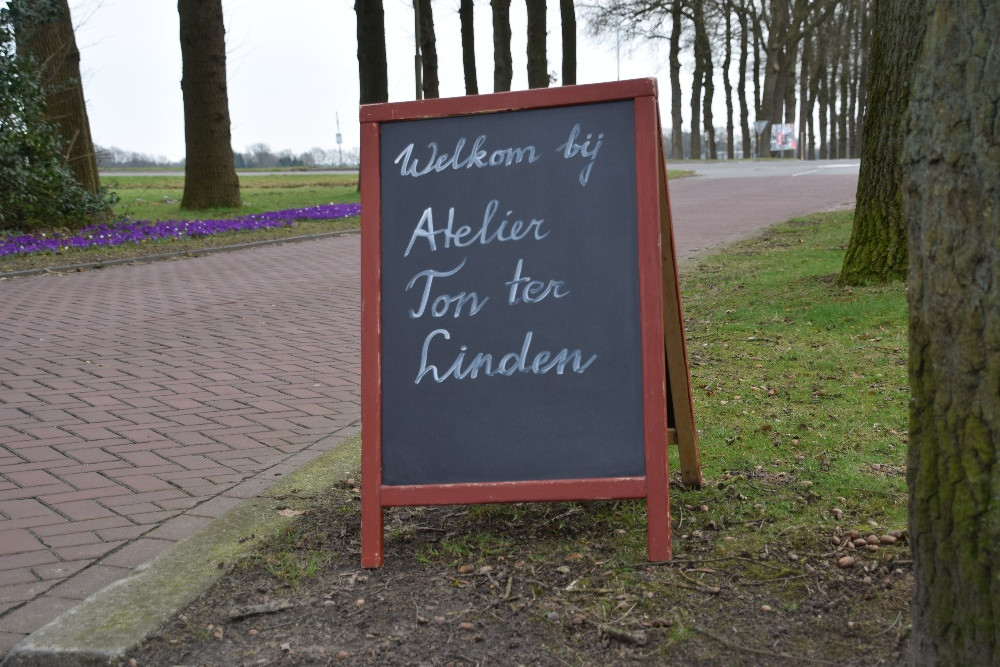 Welkom bij
Atelier
Ton ter
Linden